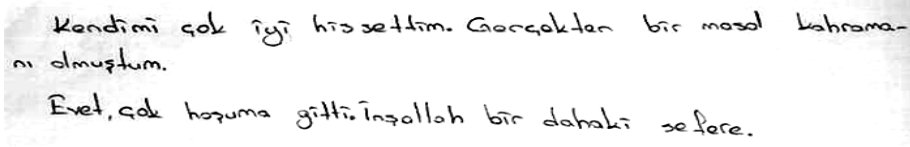 Kendimi çok iyi hissettim. Gerçekten bir masal kahrama-
nı olmuştum.
Evet, çok hoşuma gitti. İnşallah bir dahaki sefere.